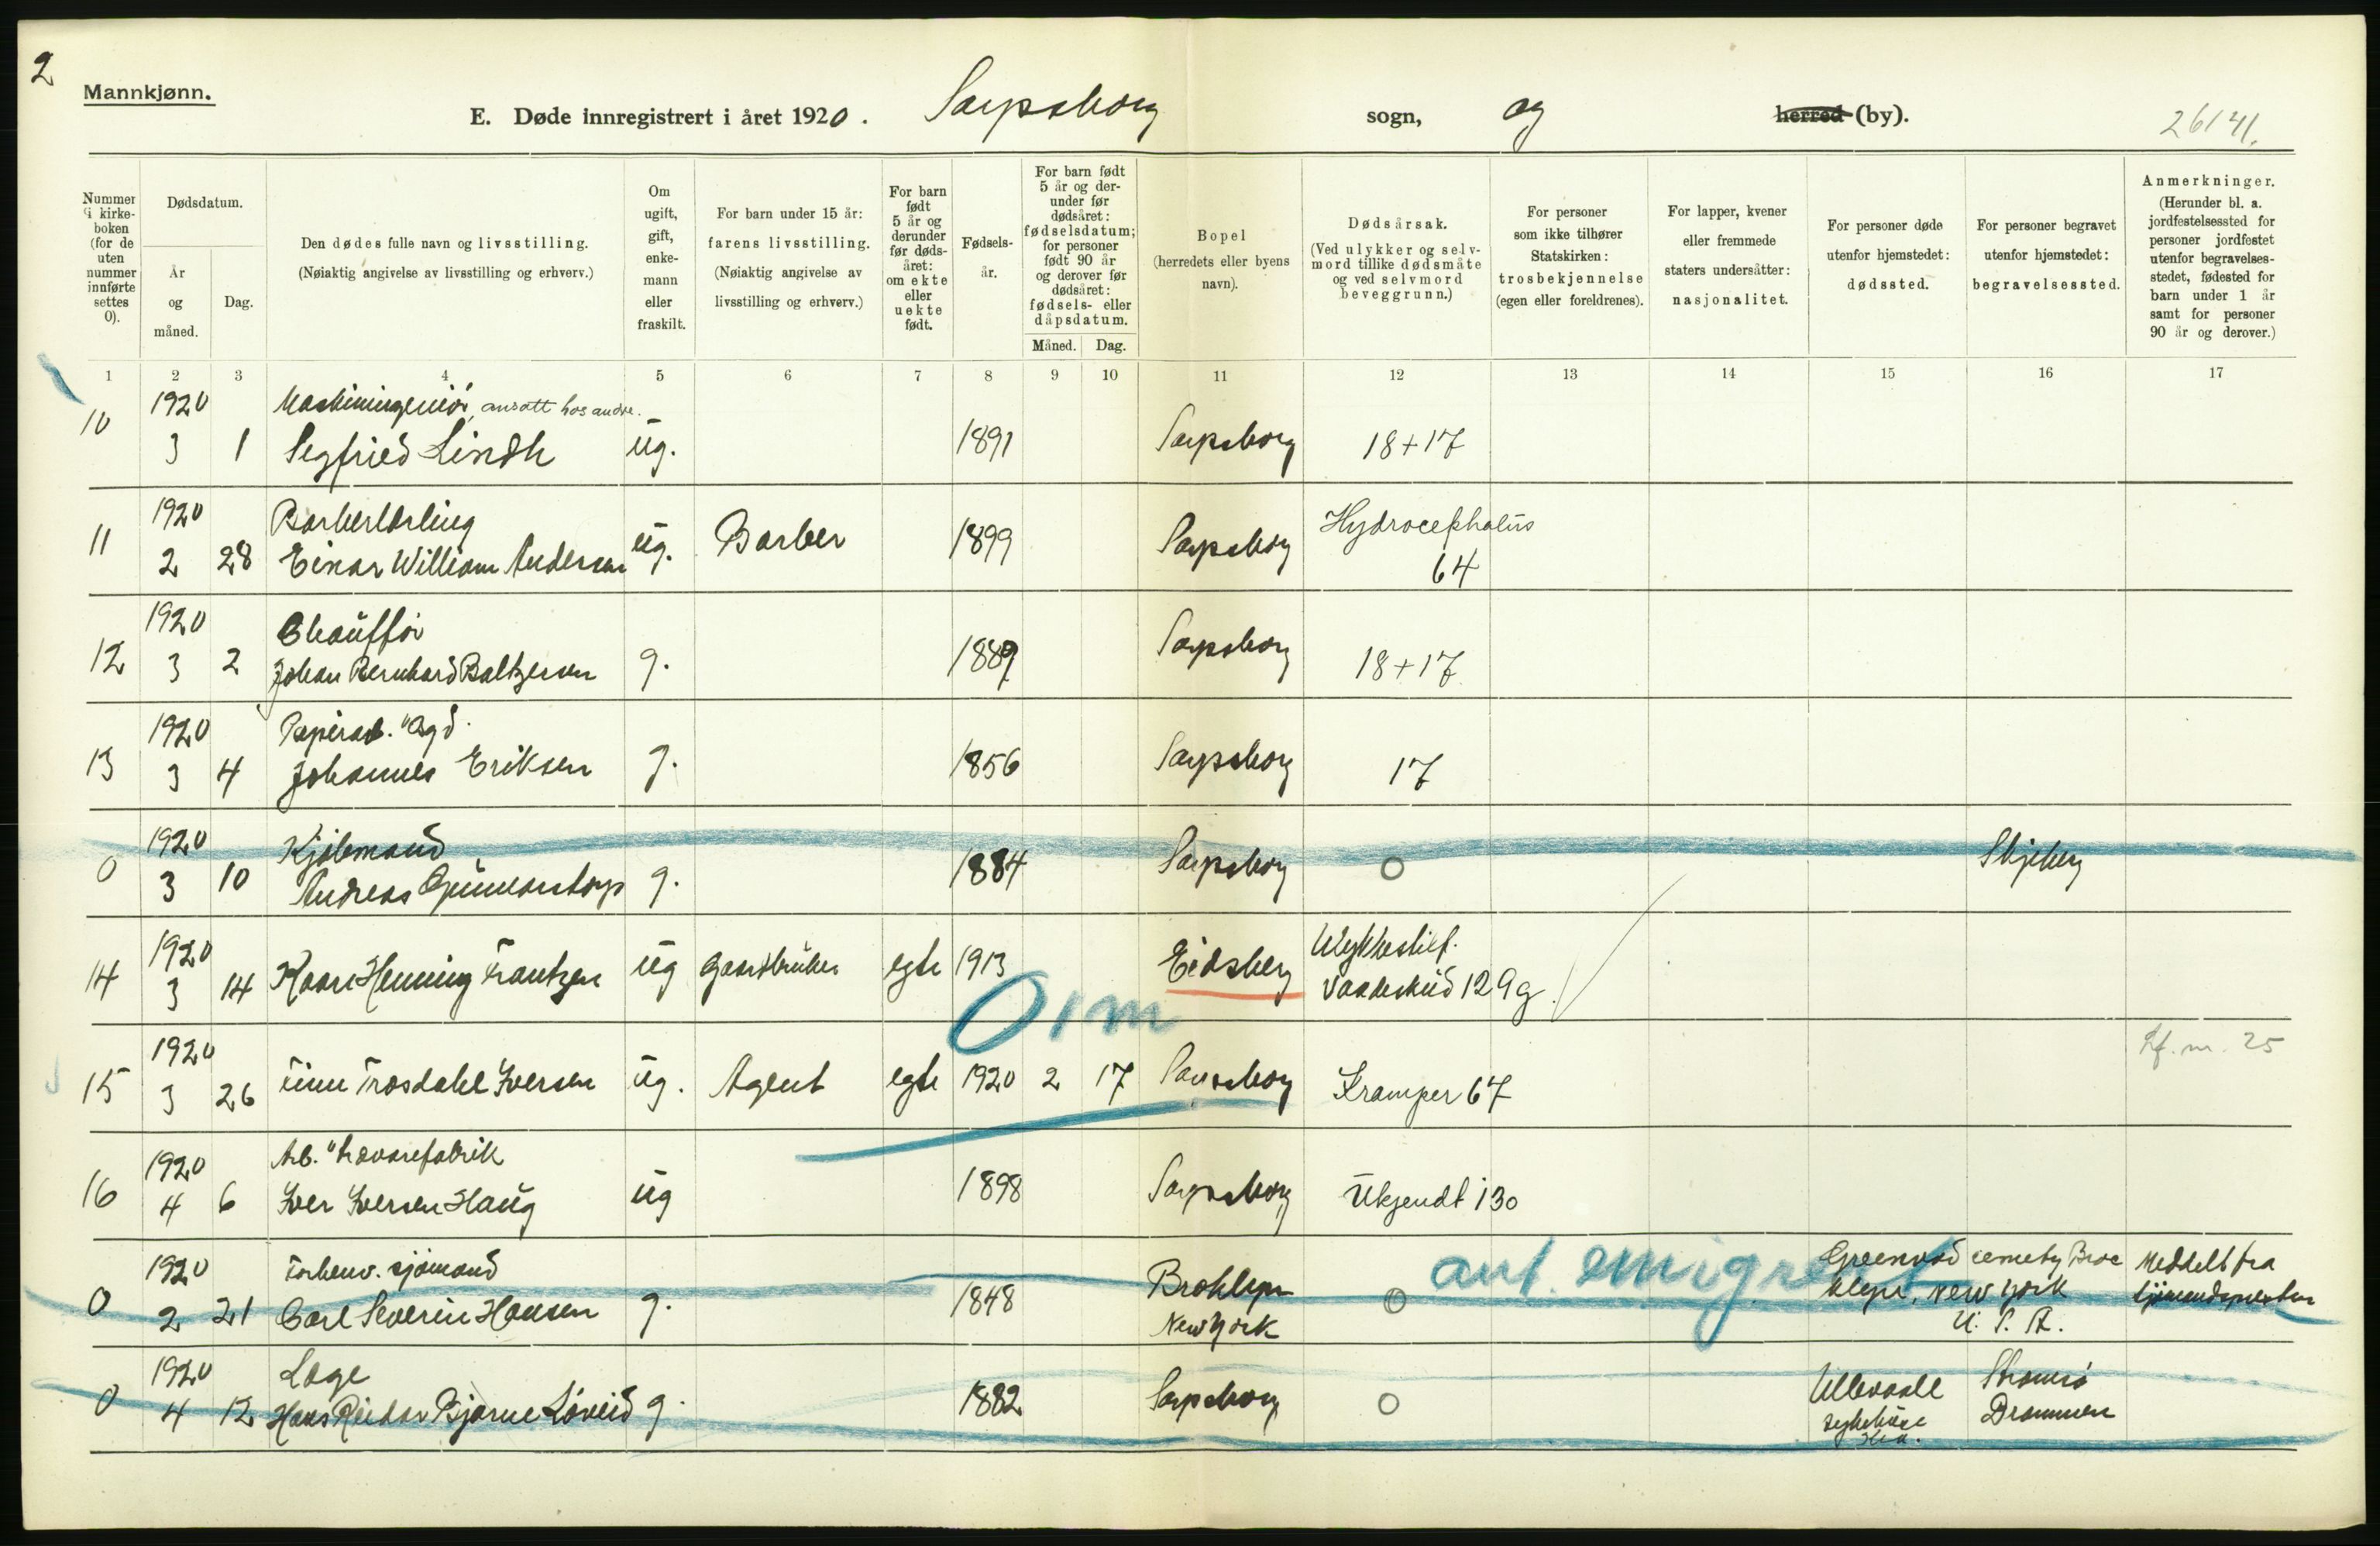 2
Mannkjønn.
E. Døde innregistrert i året 1920. Sarpsborg sogn, og herred (by).
26141.
Nummer i kirkeboken (for de uten nummer innførte settes 0).
Dødsdatum.
År og måned.
Dag.
Den dødes fulle navn og livsstilling.
(Nøiaktig angivelse av livsstilling og erhverv.)
Om ugift, gift, enkemann eller fraskilt.
For barn under 15 år: farens livsstilling.
(Nøiaktig angivelse av livsstilling og erhverv.)
For barn født 5 år og derunder før dødsåret: om ekte eller uekte født.
Fødselsår.
For barn født 5 år og derunder før dødsåret: fødselsdatum; for personer født 90 år og derover før dødsåret: fødsels- eller dåpsdatum.
Måned. Dag.
Bopel
(herredets eller byens navn).
Dødsårsak.
(Ved ulykker og selvmord tillike dødsmåte og ved selvmord beveggrunn.)
For personer som ikke tilhører Statskirken: trosbekjennelse (egen eller foreldrenes).
For lapper, kvener eller fremmede staters undersåtter: nasjonalitet.
For personer døde utenfor hjemstedet: dødssted.
For personer begravet utenfor hjemstedet: begravelsessted.
Anmerkninger.
(Herunder bl. a. jordfestelsessted for personer jordfestet utenfor begravelsesstedet, fødested for barn under 1 år samt for personer 90 år og derover.)
1 2 3 4 5 6 7 8 9 10 11 12 13 14 15 16 17
1920 Maskiningeniør, ansatt hos andre.
10 3 1 Segfried Lindh ug. 1891 Sarpsborg 18+17
1920 Barberlærling Hydrocephalus
11 2 28 Einar William Andersen ug. Barber 1899 Sarpsborg 64
1920 Chauffør
12 3 2 Johan Bernhard Baltzersen g. 1889 Sarpsborg 18+17
1920 Papirarb.
13 3 4 Johannes Eriksen g. 1856 Sarpsborg 17
1920 Kjøbmand
0 3 10 Andreas Gunnarstorp g. 1884 Sarpsborg 0 Skjeberg
1920 Ulykkestilf.
14 3 14 Kaare Henning Frantzen ug Gaardbruker egte 1913 Eidsberg Vaadeskud 129g
01m
1920 Lf. nr. 25
15 3 26 Finn Trosdahl Iversen ug. Agent egte 1920 2 17 Sarpsborg Kramper 67
1920 Arb. Trævarefabrik
16 4 6 Iver Iversen Haug ug 1898 Sarpsborg Ukjendt 130
ant. emigrant
1920 Forhenv. sjømand Broklyn Greenwod cemety Broo Meddelt fra
0 2 21 Carl Severin Hansen g. 1848 New York 0 klyn, New York sjømandspresten
U. S. A.
1920 Læge Ullevaale Strømsø
0 4 12 Hans Reidar Bjarne Løveid g. 1882 Sarpsborg 0 sykehuse Drammen
Kra.